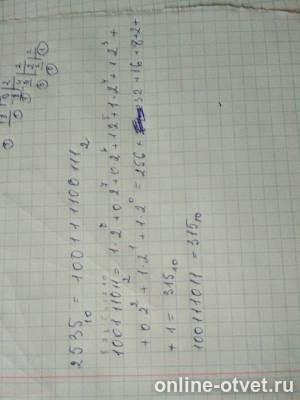 2535₁₀ = 100111100111₂
100111011₂ = 1·2⁸ + 0·2⁷ + 0·2⁶ + 1·2⁵ + 1·2⁴ + 1·2³ +
+ 0·2² + 1·2¹ + 1·2⁰ = 256 + 32 + 16 + 8 + 2 +
+ 1 = 315₁₀
100111011 = 315₁₀
online-otvet.ru